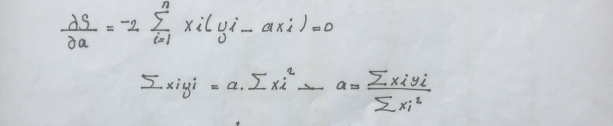 ∂S/∂a = -2 Σ_{i=1}^{n} xi(yi - axi) = 0
Σxiyi = a. Σxi² — a = Σxiyi / Σxi²